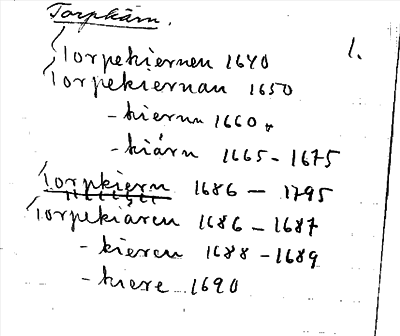 Torpkärn.
1.
Torpekiernen 1640
Torpekiernan 1650
- kiernn 1660
- kiárn 1665 - 1675
Torpkiern 1686 - 1795
Torpekiären 1686 - 1687
- kieren 1688 - 1689
- kiere 1690